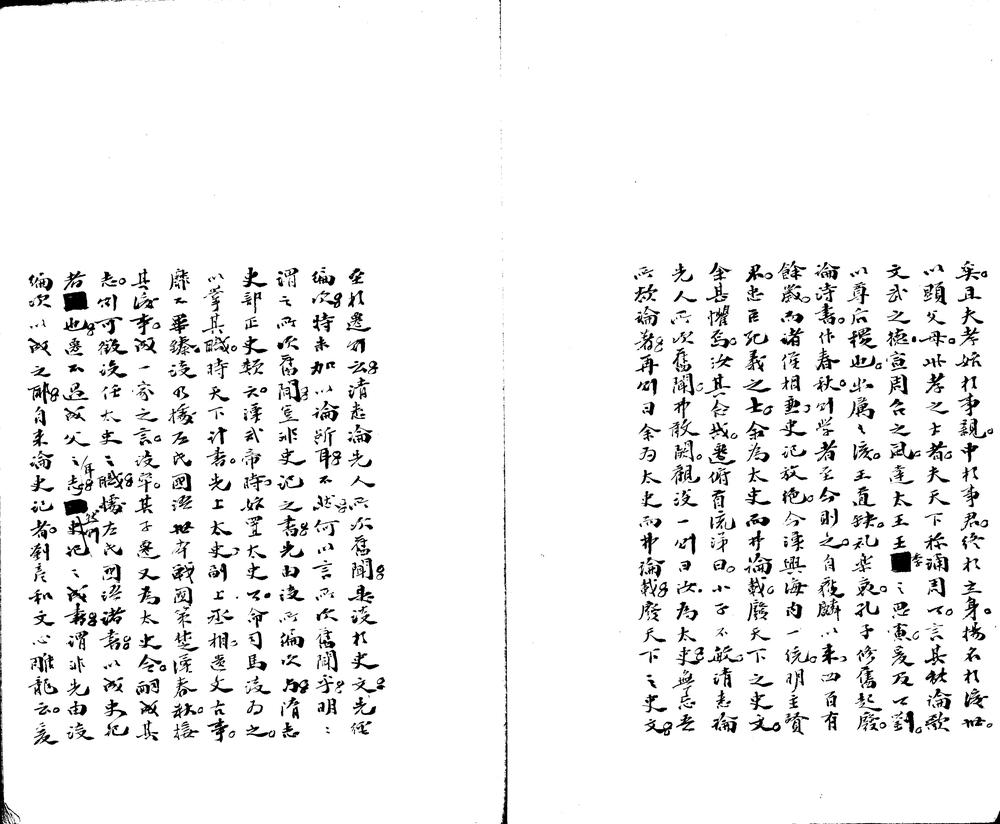 矣。且夫孝始於事親。中於事君。終於立身。揚名於後世。
以顯父母。此孝之大者。夫天下稱誦周公。言其能論歌
文武之德。宣周召之風。達太王王季之思慮。爰及公劉。
以尊后稷也。幽厲之後。王道缺。礼樂衰。孔子修舊起廢。
論詩書。作春秋。則学者至今則之。自獲麟以来。四百有
餘歲。而諸侯相兼。史记放絶。今漢興。海内一統。明主賢
君。忠臣死義之士。余為太史。而弗論載。廢天下之史文。
余甚懼焉。汝其念哉。遷俯首流涕曰。小子不敏。請悉論
先人所次舊聞。弗敢闕。觀談一則曰汝為太史。無忘吾
所欲論著。再則曰余为太史而弗論載。廢天下之史文。
至於遷則云。請悉論先人所次舊聞。是談於史文。先經
編次。特未加以論斷耳。不然。何以言所次舊聞乎。明明
謂之所次舊聞。豈非史记之書。先由談所編次与。隋志
史部正史類云。漢武帝時。始置太史公。命司馬談为之。
以掌其職。時天下計書。先上太史。副上丞相。遗文古事。
靡不畢臻。談乃據左氏國語世本戰國策楚漢春秋。接
其後事。成一家之言。談卒。其子遷又為太史令。嗣成其
志。則可徵談任太史之職。據左氏國語諸書以成史记
者也。遷不過成父之志耳。然則史记之成書。謂非先由談
編次以成之耶。自来論史记者。劉彦和文心雕龍云。爰